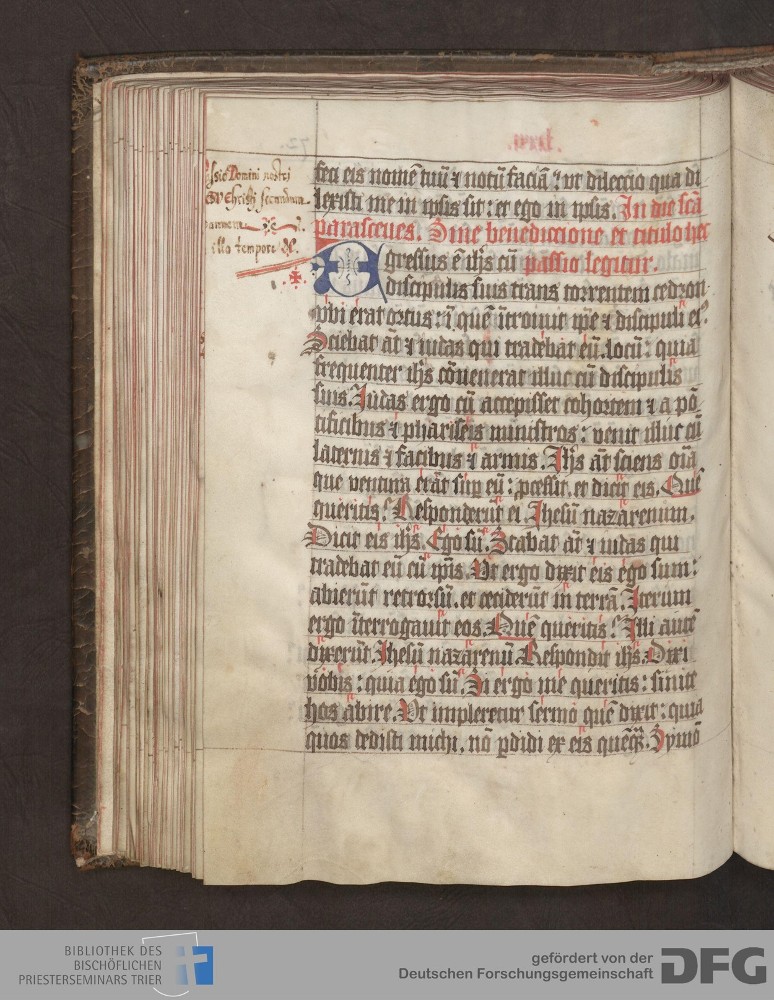 72.
lxxij.
ssio Domini nostri
Christi secundum
illo tempore
feci eis nomē tuū ⁊ notū faciā : vt dileccio qua di
lexisti me in ipsis sit : et ego in ipsis. In die scā
parasceues. Sine benediccione et titulo hec
Egressus ē ihs cū passio legitur.
discipulis suis trans torrentem cedron
vbi erat ortus : ī quē ītroiuit ipe ⁊ discipuli eꝰ
Sciebat at ⁊ iudas qui tradebat eū. locū : quia
frequenter ihs cōuenerat illuc cū discipulis
suis. Iudas ergo cū accepisset cohortem ⁊ a pō
tificibus ⁊ phariseis ministros : venit illuc cū
laternis ⁊ facibus ⁊ armis. Ihs at sciens oīa
que ventura erāt sup eū : pcessit. et dicit eis. Quē
queritis? Responderūt ei Ihesū nazarenum.
Dicit eis ihs. Ego sū. Stabat at ⁊ iudas qui
tradebat eū cū ipīs. Vt ergo dixit eis ego sum :
abierūt retrorsū. et ceciderūt in terrā. Iterum
ergo īterrogauit eos. Quē queritis? Illi autē
dixerūt. Ihesū nazarenū. Respondit ihs. Dixi
vobis : quia ego sū. Si ergo me queritis : sinite
hos abire. Vt impleretur sermo quē dixit : quia
quos dedisti michi, nō pdidi ex eis quēq̄. Symō
BIBLIOTHEK DES
BISCHÖFLICHEN
PRIESTERSEMINARS TRIER
gefördert von der
Deutschen Forschungsgemeinschaft
DFG